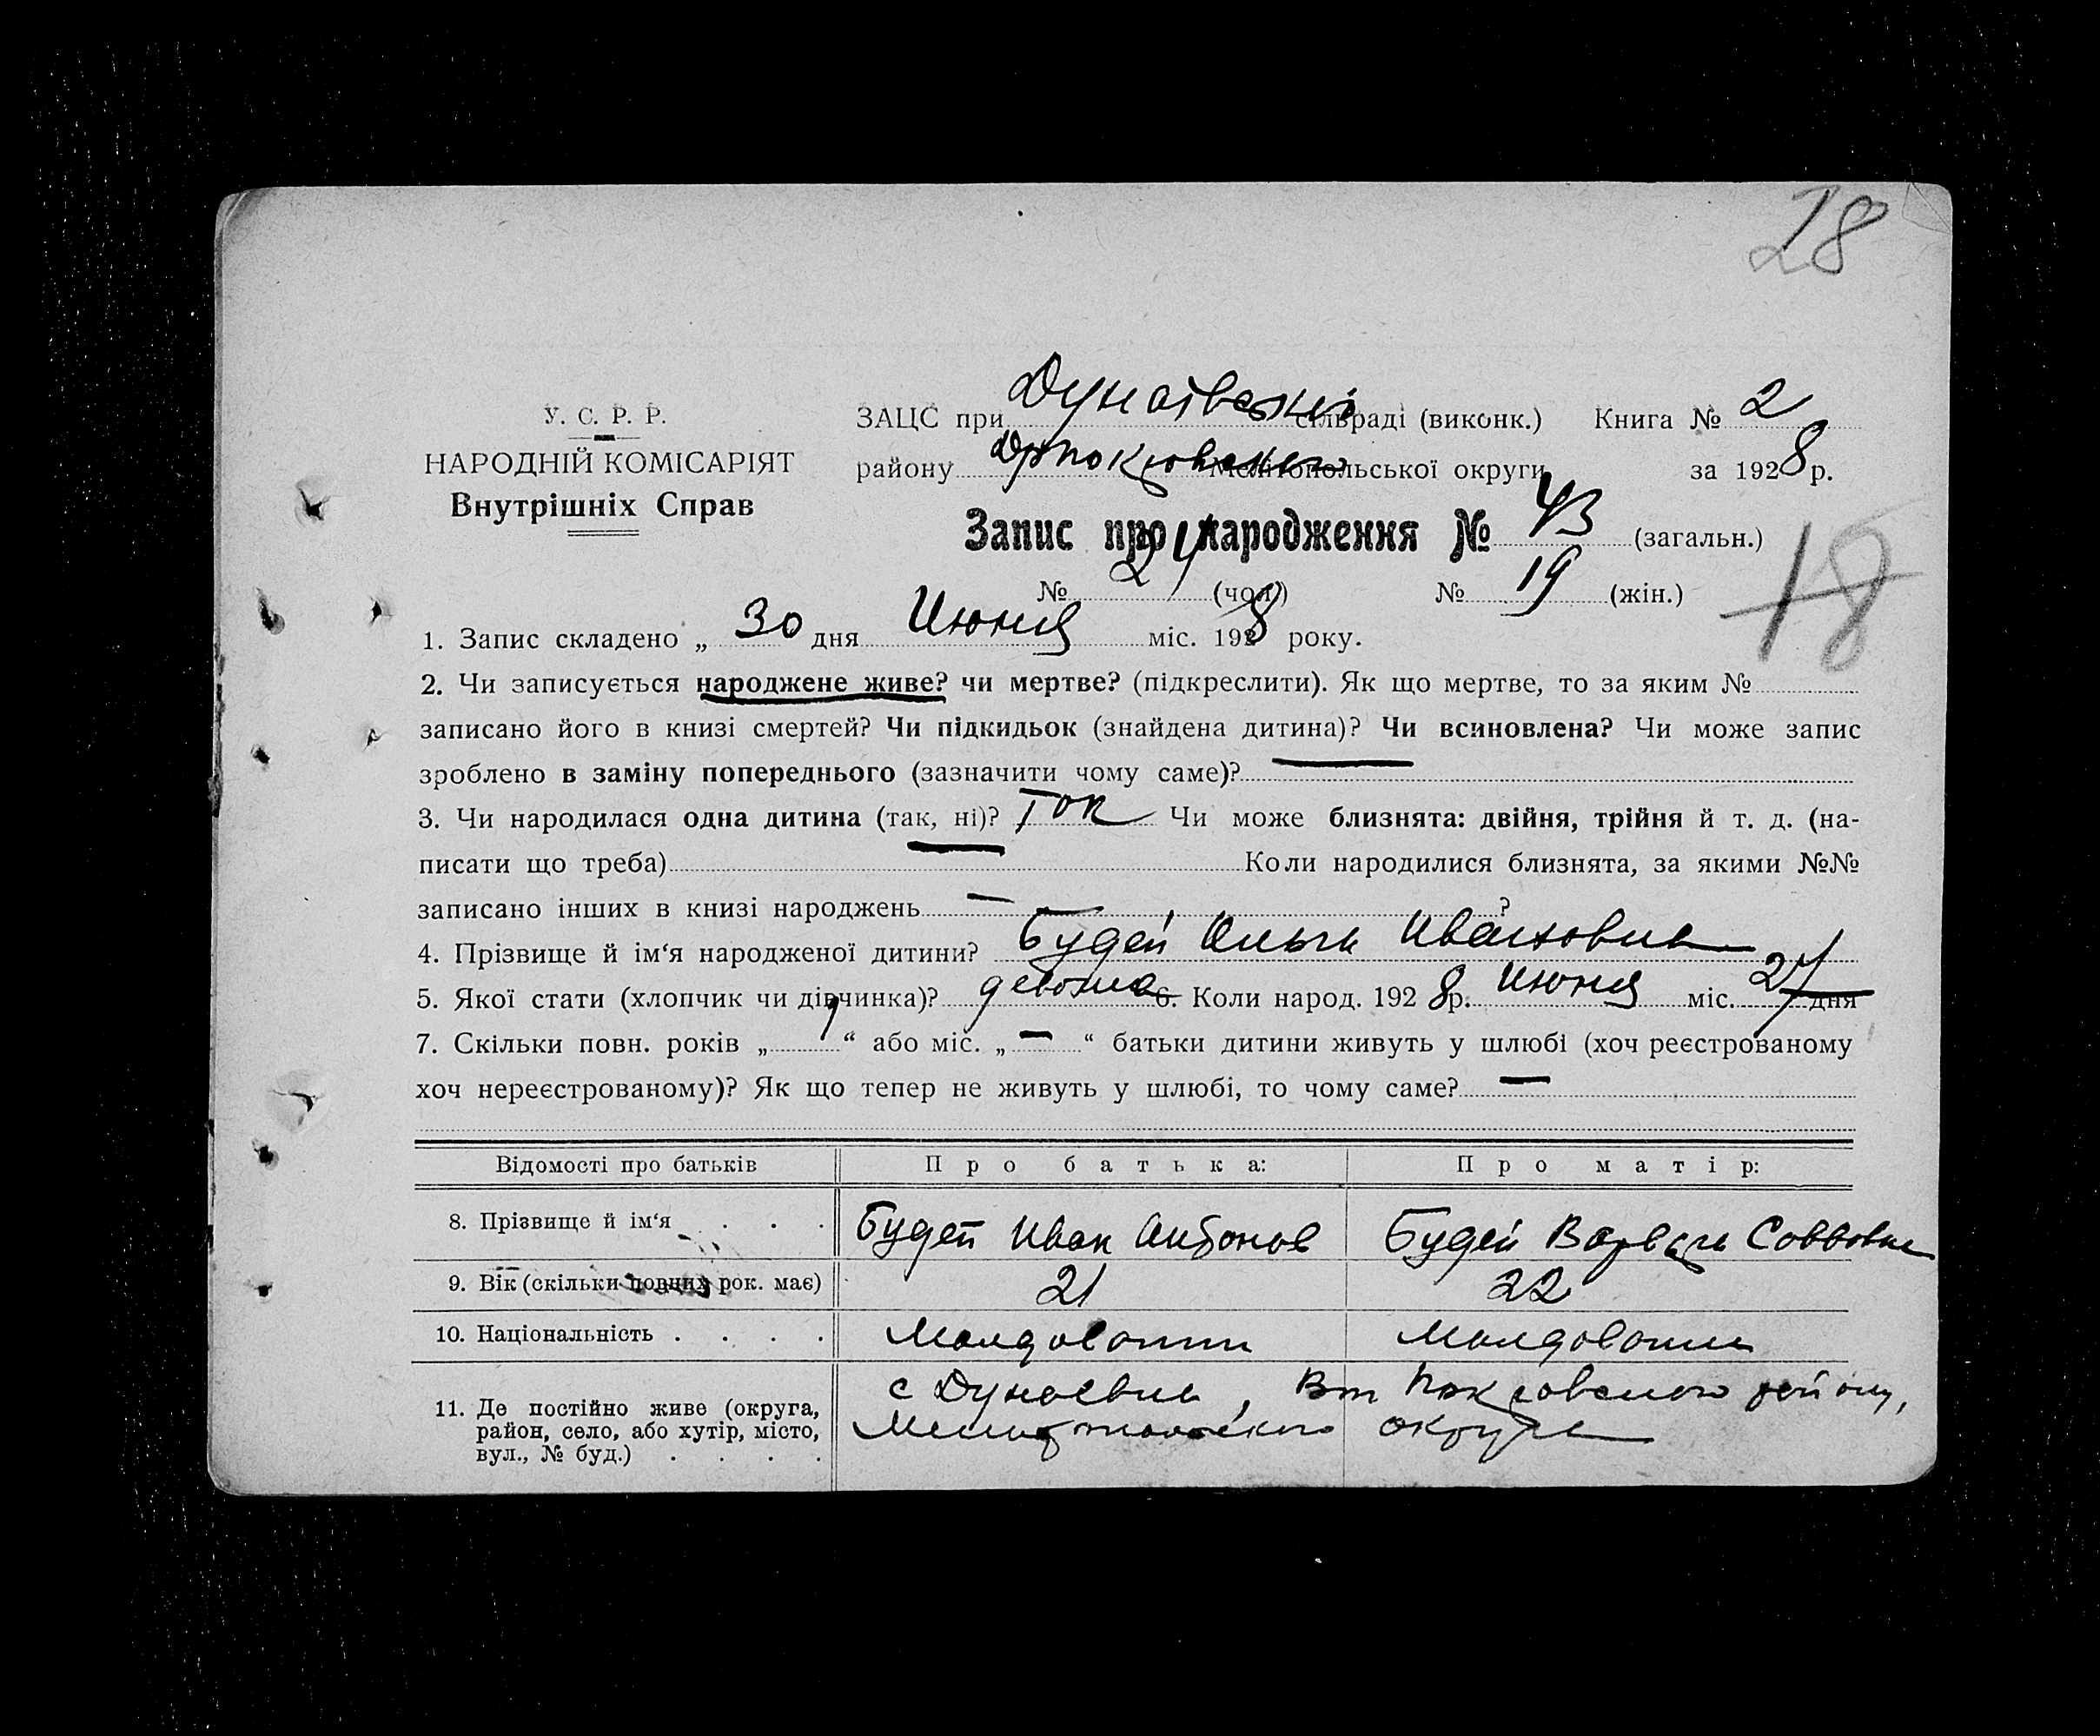 28
У. С. Р. Р.
НАРОДНІЙ КОМІСАРІЯТ
Внутрішніх Справ
ЗАЦС при Дунаївській сільраді (виконк.) Книга № 2
району Мелітопольської округи за 1928 р.
Запис про народження № 43 (загальн.)
№ 24 (чол.) № 19 (жін.)
18
1. Запис складено „ 30 дня Июня міс. 1928 року.
2. Чи записується народжене живе? чи мертве? (підкреслити). Як що мертве, то за яким №
записано його в книзі смертей? Чи підкидьок (знайдена дитина)? Чи всиновлена? Чи може запис
зроблено в заміну попереднього (зазначити чому саме)? —
3. Чи народилася одна дитина (так, ні)? Так Чи може близнята: двійня, трійня й т. д. (на-
писати що треба) — Коли народилися близнята, за якими №№
записано інших в книзі народжень — ?
4. Прізвище й ім‘я народженої дитини? Будей Ольга Ивановна
5. Якої стати (хлопчик чи дівчинка)? 6. Коли народ. 1928 р. Июня міс. 27 дня
7. Скільки повн. років „ 1 “ або міс. „ — “ батьки дитини живуть у шлюбі (хоч реєстрованому
хоч нереєстрованому)? Як що тепер не живуть у шлюбі, то чому саме? —
Відомості про батьків Про батька: Про матір:
8. Прізвище й ім‘я . . . Будей Иван Антонов Будей Варвара Саввовна
9. Вік (скільки повних рок. має) 21 22
10. Національність . . . . Молдован Молдован
11. Де постійно живе (округа, район, село, або хутір, місто, вул., № буд.) . . . . с Дунаевка, Покровского району,
Мелитопольского округа